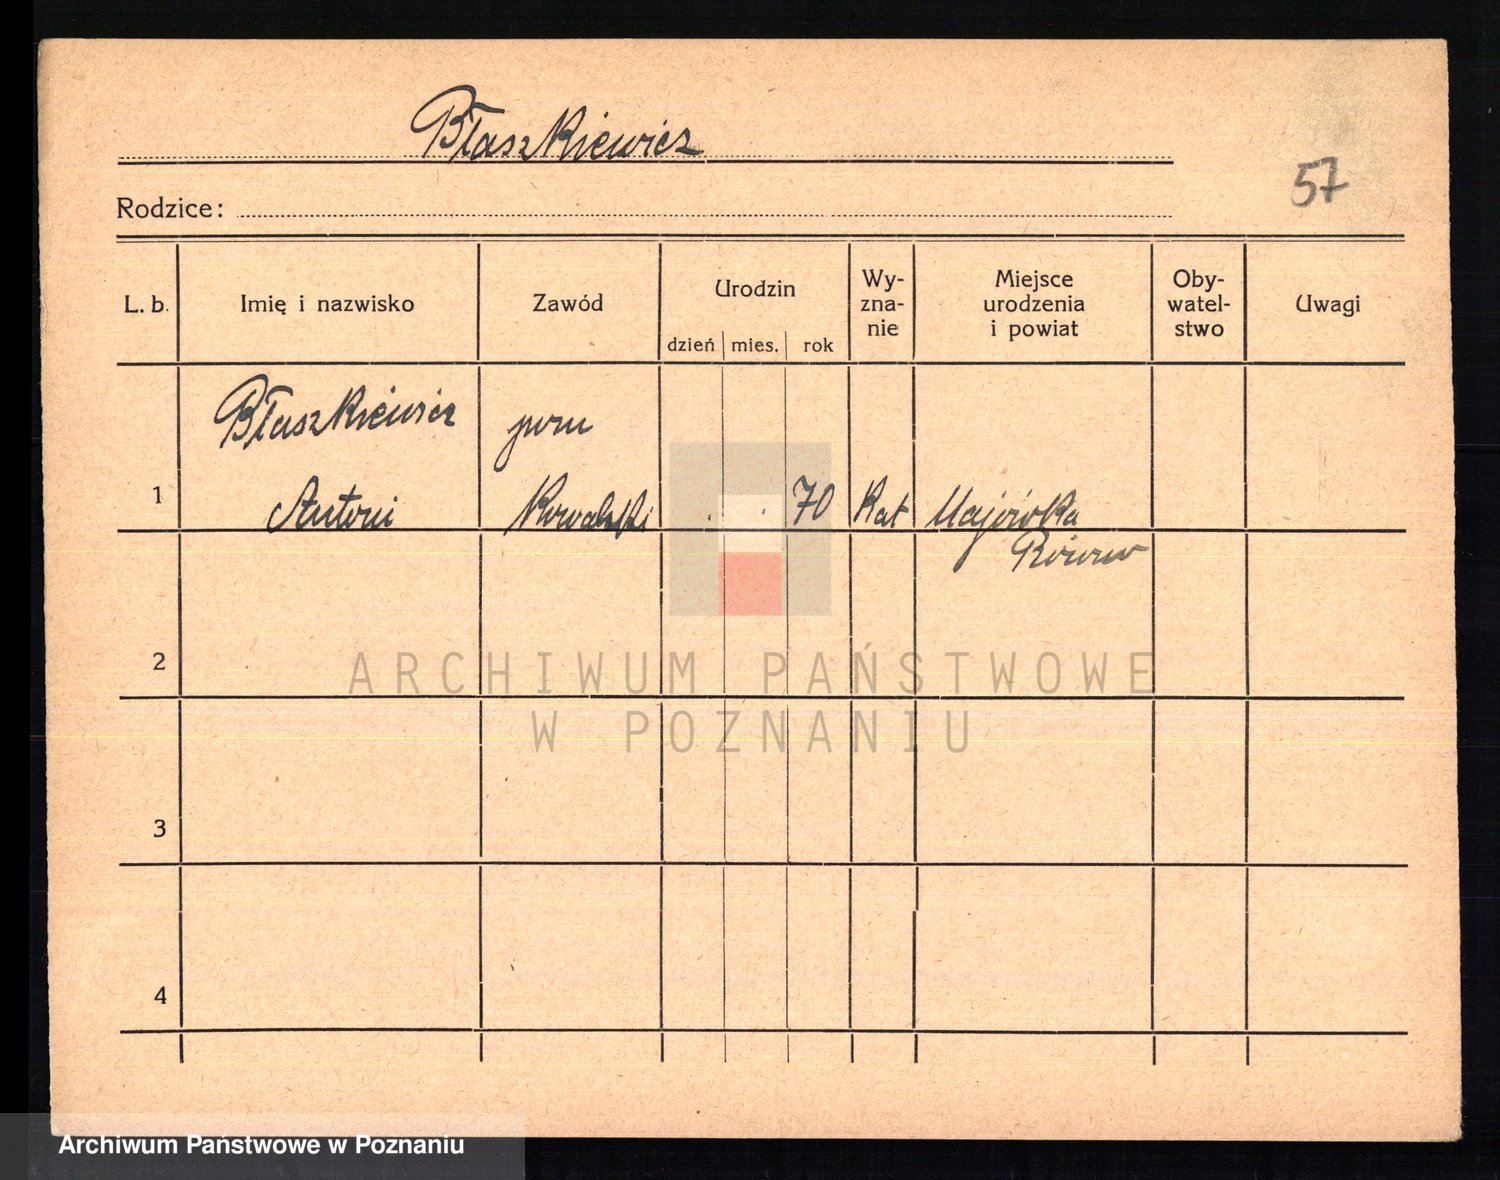 Błaszkiewicz
57
Rodzice:
L. b.
Imię i nazwisko
Zawód
Urodzin
dzień mies. rok
Wy-
zna-
nie
Miejsce
urodzenia
i powiat
Oby-
watel-
stwo
Uwagi
1
Błaszkiewicz
Antoni
pom
Kowalski
. . 70
Kat
Majówka
2
3
4
ARCHIWUM PAŃSTWOWE
W POZNANIU
Archiwum Państwowe w Poznaniu